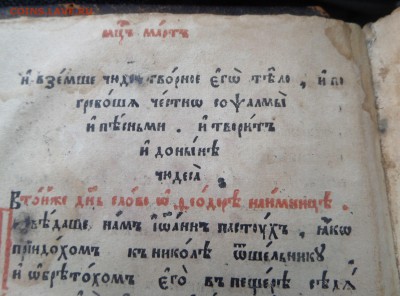 мц҃ъ ма́ртъ
и҆ взе́мше чꙋдотво́рное є҆гѡ̀ тѣ́ло, и҆ по
гребо́ша че́стнѡ со ѱалмы̀
и҆ пѣ́сньми. и҆ твори́тъ
и҆ доны́нѣ
чꙋдеса̀,
Въ то́йже дн҃ь сло́во ѡ҆ ѳео́дорѣ наи́мницѣ.
повѣ́даше, на́мъ і҆ѡа́ннъ пастꙋ́хъ, ꙗ҆́кѡ
прїидо́хомъ къ нико́лѣ ѿше́льникꙋ
и҆ ѡ҆брѣто́хомъ є҆го̀ въ пеще́рѣ сѣдѧ̀